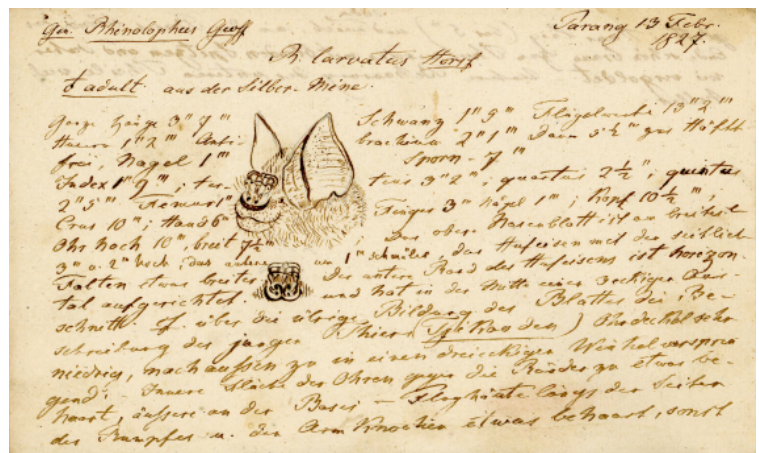 Gen. Rhinolophus Geoff Parang 13 Febr.
1827.
Rh. larvatus Horsf
♀ adult aus der Silber-Mine
Ganze Länge 3" 7''' Schwanz 1" 9''' Flügelweite 13" 2'''
Humer 1" 2''' Anti- brachium 2" 1''' Daum 5½''' zur Hälfte
frei, Nagel 1''' Sporn 7'''
Index 1" 9'''; ter- tius 3" 2'''; quartus 2½"; quintus
2" 5''' Femur 1" Finger 3''' Nagel 1'''; Kopf 10½''';
Crus 10'''; Hand 6''' Das obere Nasenblatt ist am breitest
Ohr hoch 10''', breit 7½''';
3''' u. 2''' hoch; das untere um 1''' schmäler das Hufeisen mit den seitlich
Falten etwas breiter Der untere Rand des Hufeisens ist horizon-
tal aufgerichtet. und hat in der Mitte einen 3eckigen Aus-
schnitt. Cf. über die übrige Bildung des Blattes die Be-
schreibung des jungen Thiers (Spitkonden) Ohrdeckel sehr
niedrig, nach aussen zu in einen dreieckigen Winkel vorsprin
gend. - Innere Fläche der Ohren gegen die Ränder zu etwas be-
haart, äussere an der Basis - Flughäute längs der Seiten
des Rumpfes u. der Arm Knochen etwas behaart, sonst